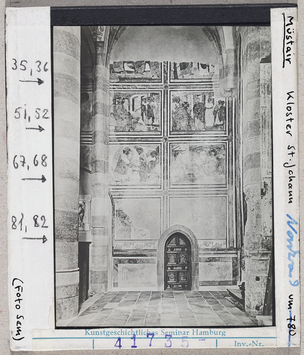 35, 36
51, 52
67, 68
81, 82
(Foto Sem)
Müstair Kloster St. Johann Nordwand um 780
Kunstgeschichtliches Seminar Hamburg
Inv.-Nr.
41735